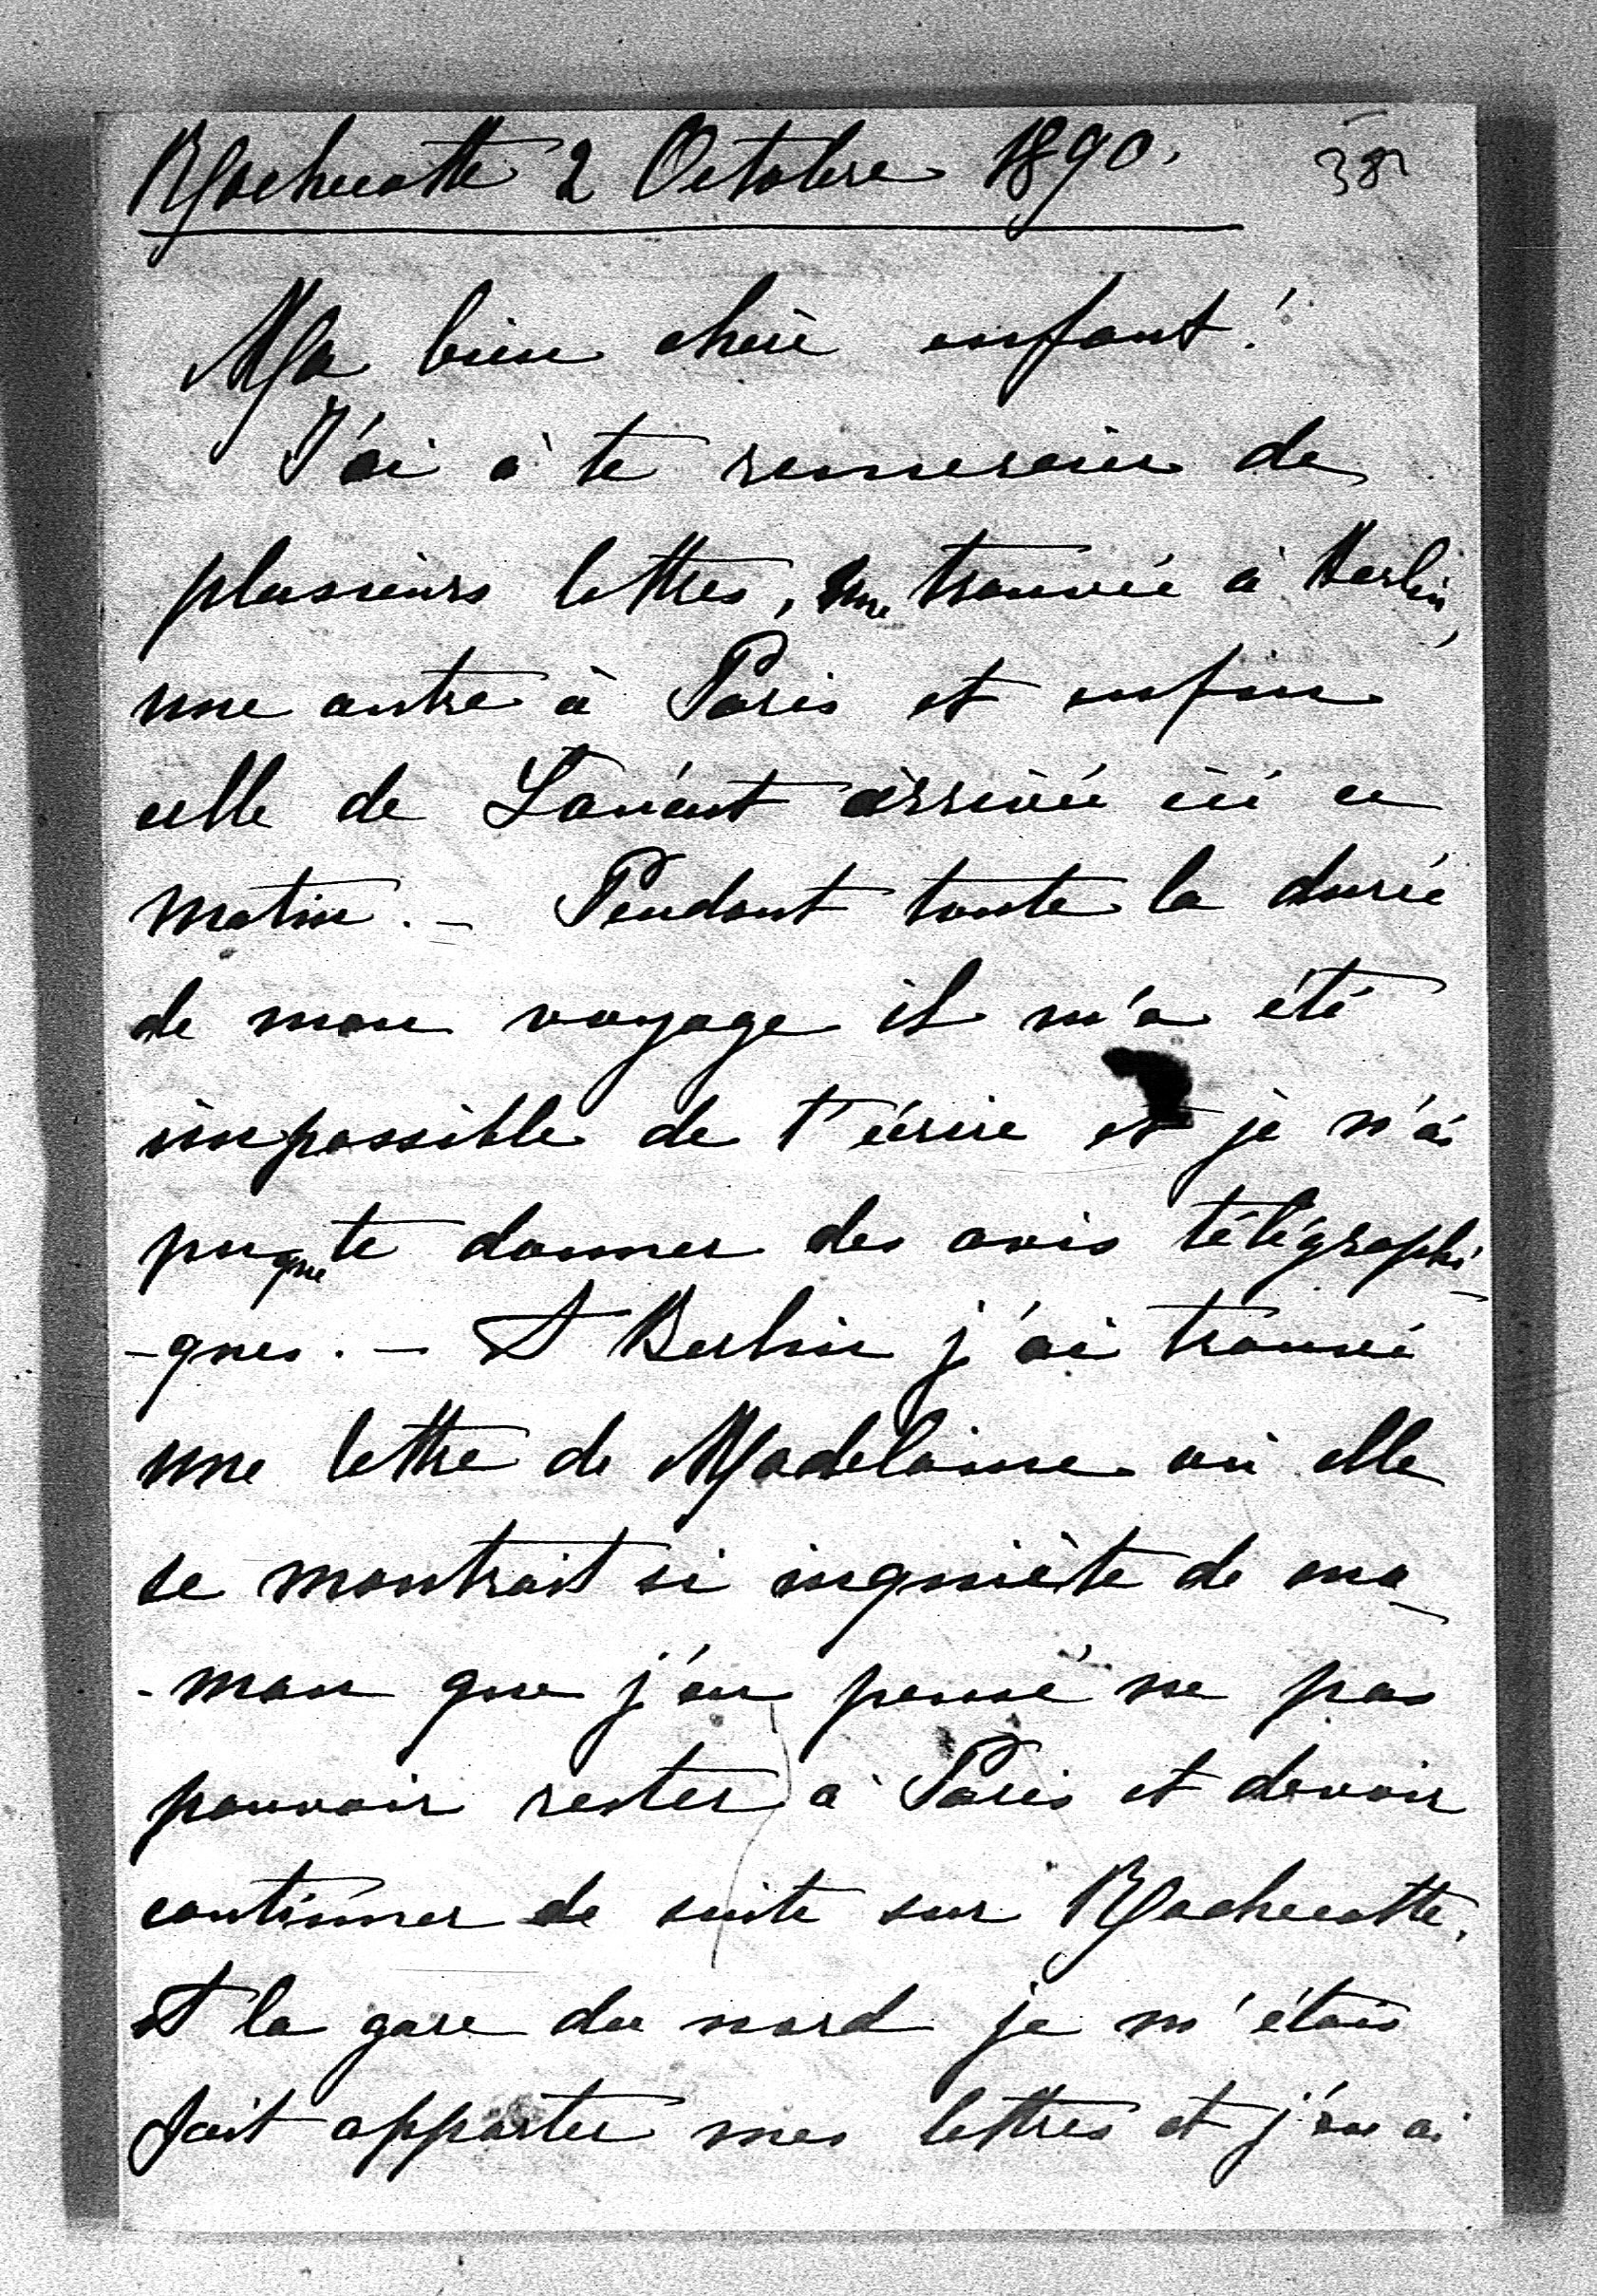 Rochecotte 2 Octobre 1890. 382
Ma bien chère enfant!
J'ai à te remercier de
plusieurs lettres, une trouvée à Berlin,
une autre à Paris et enfin
celle de Lancut arrivée ici ce
matin. — Pendant toute la durée
de mon voyage il m'a été
impossible de t'écrire et je n'ai
pu que te donner des avis télégraphi-
-ques. — A Berlin j'ai trouvé
une lettre de Madelaine où elle
se montrait si inquiète de ma-
-man que j'ai pensé ne pas
pouvoir rester à Paris et devoir
continuer de suite sur Rochecotte.
A la gare du nord je m'étais
fait apporter mes lettres et j'en ai